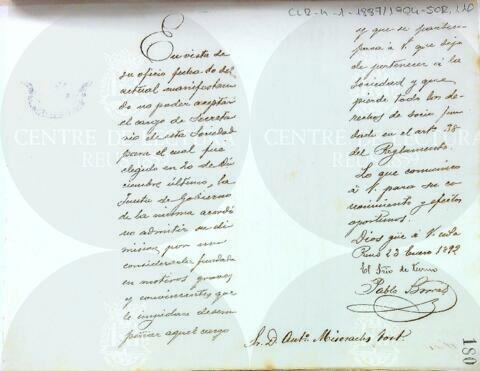 CLR-4-1-1887/1904-SOR, 110
En vista de
su oficio fecha 10 del
actual manifestan
do no poder aceptar
el cargo de Secreta
rio de esta Sociedad
para el cual fue
elegido en 20 de Di
ciembre último, la
Junta de Gobierno
de la misma acordó
no admitir su di
misión por no
considerarla fundada
en motivos graves
y convenientes que
le impidan desem
peñar aquel cargo
y que se partici
para á V. que deja
de pertenecer á la
Sociedad y que
pierde todo los de
rechos de socio fun
dado en el artº 38
del Reglamento.
Lo que comunico
á V. para su co
nocimiento y efectos
oportunos.
Dios gue á V.
Reus 23 Enero 1892
El Srio de turno
Pablo
Sr. D. Antº Miserachs
180
CENTRE DE LECTURA
REUS 1859